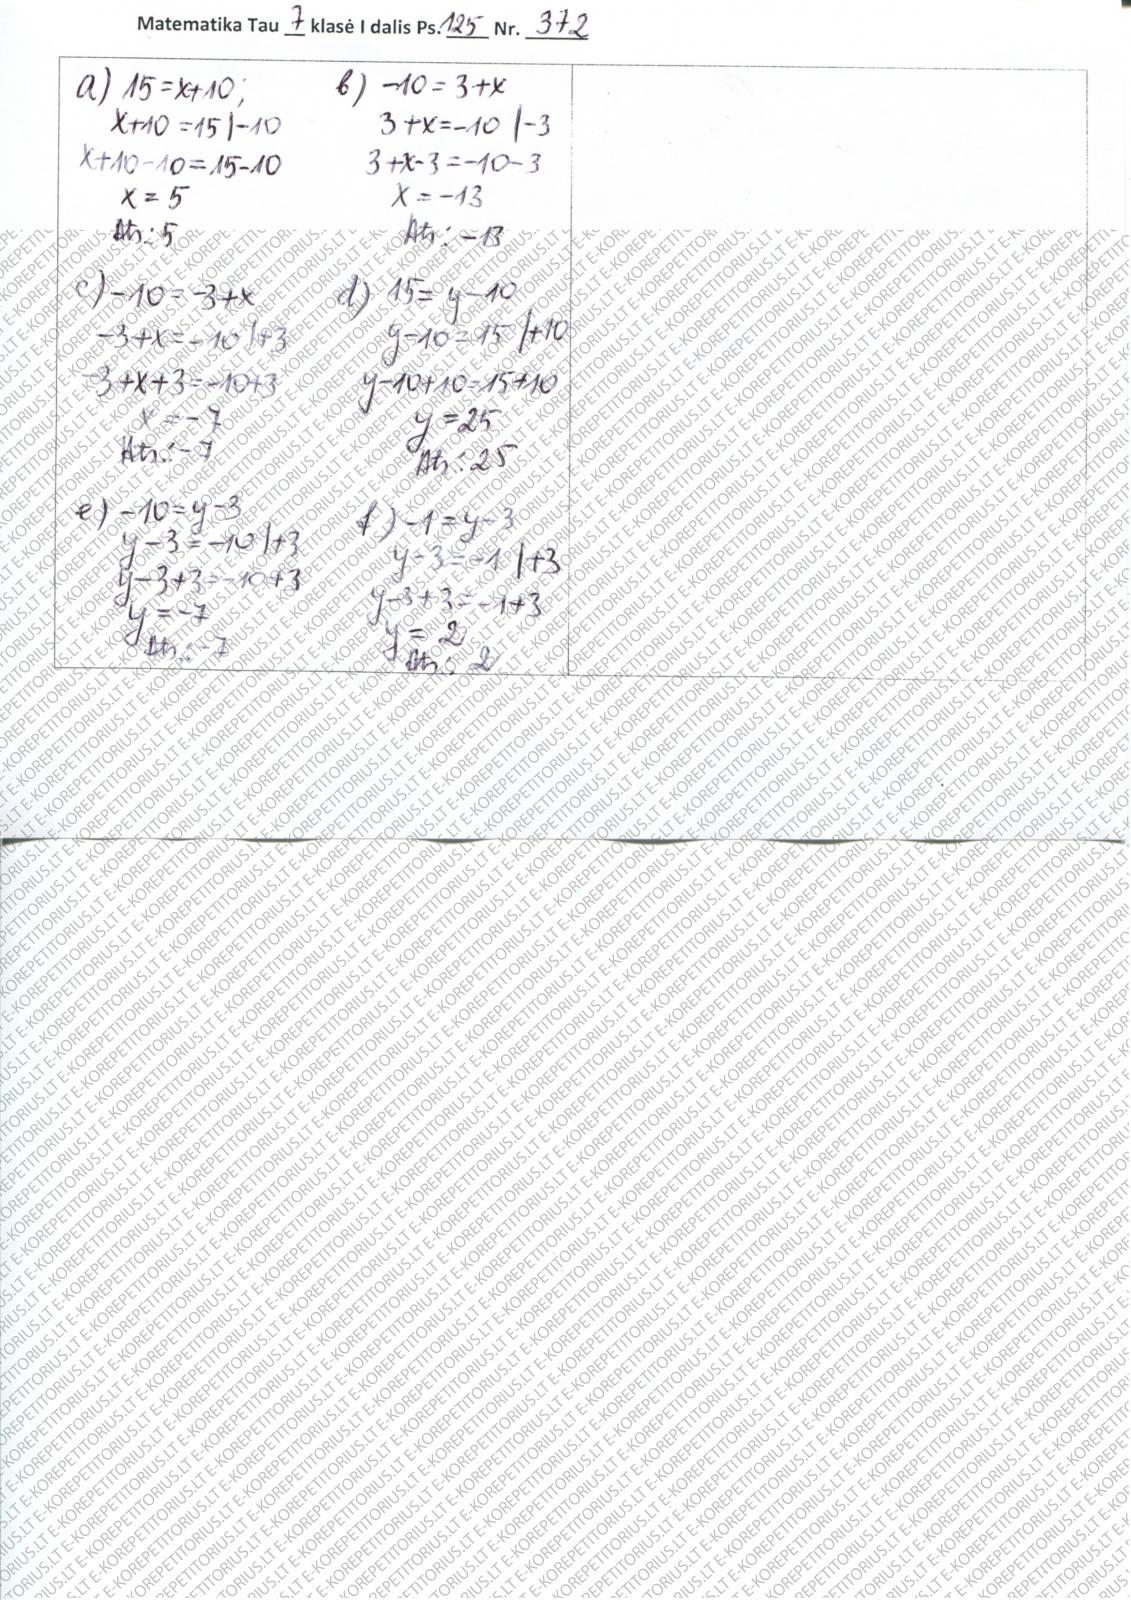 Matematika Tau 7 klasė I dalis Ps. 125 Nr. 372
a) 15=x+10;
x+10=15|-10
x+10-10=15-10
x=5
Ats.: 5
b) -10=3+x
3+x=-10 |-3
3+x-3=-10-3
x=-13
Ats.: -13
c) -10=-3+x
-3+x=-10|+3
-3+x+3=-10+3
x=-7
Ats.: -7
d) 15=y-10
y-10=15 |+10
y-10+10=15+10
y=25
Ats.: 25
e) -10=y-3
y-3=-10|+3
y-3+3=-10+3
y=-7
Ats.: -7
f) -1=y-3
y-3=-1 |+3
y-3+3=-1+3
y=2
Ats.: 2
E-KOREPETITORIUS.LT